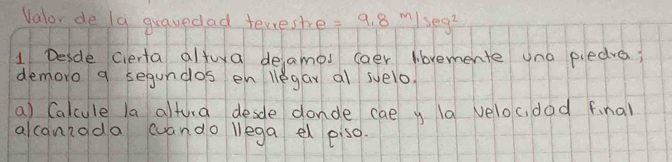 Valor de la gravedad terrestre = 9.8 m/seg²
1 Desde cierta altura dejamos caer libremente una piedra;
demoro 9 segundos en llegar al suelo.
a) Calcule la altura desde donde cae y la velocidad final
alcanzada cuando llega el piso.